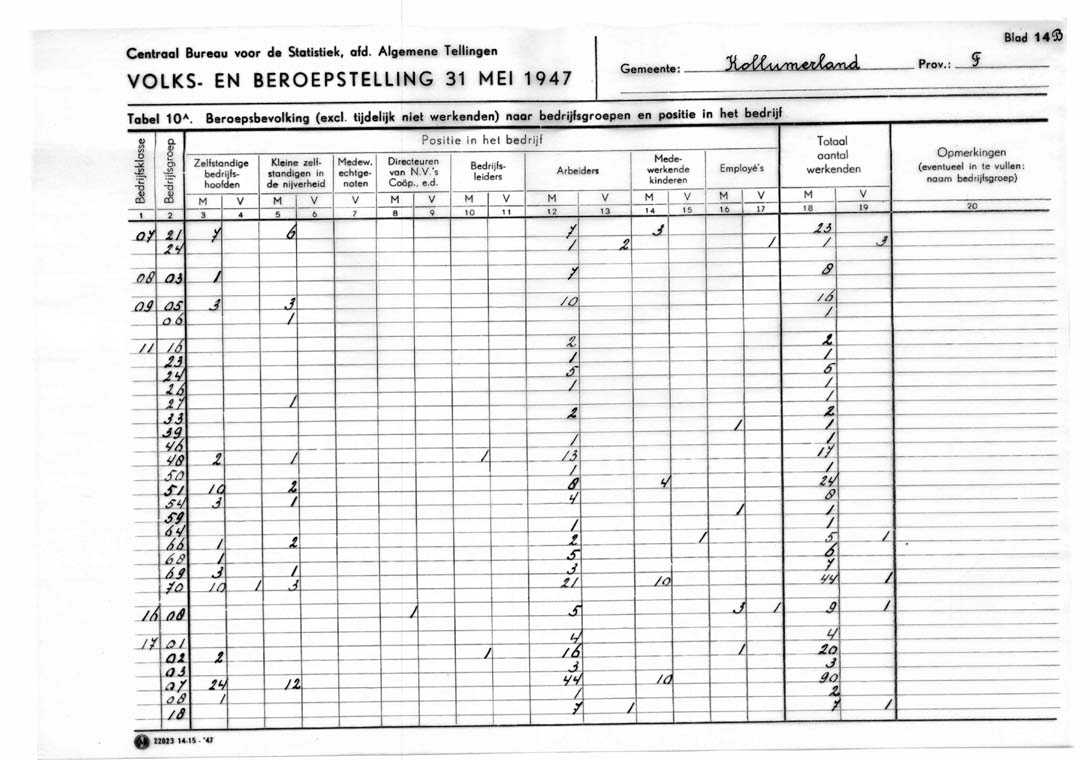 Blad 14B
Centraal Bureau voor de Statistiek, afd. Algemene Tellingen
VOLKS- EN BEROEPSTELLING 31 MEI 1947
Gemeente: Kollumerland Prov.: F
Tabel 10ᴬ. Beroepsbevolking (excl. tijdelijk niet werkenden) naar bedrijfsgroepen en positie in het bedrijf
Bedrijfsklasse Bedrijfsgroep Positie in het bedrijf Totaal aantal werkenden Opmerkingen (eventueel in te vullen: naam bedrijfsgroep)
Zelfstandige bedrijfs-hoofden Kleine zelf-standigen in de nijverheid Medew. echtge-noten Directeuren van N.V.'s Coöp., e.d. Bedrijfs-leiders Arbeiders Mede-werkende kinderen Employé's
M V M V V M V M V M V M V M V M V
1 2 3 4 5 6 7 8 9 10 11 12 13 14 15 16 17 18 19 20
07 21 7 6 7 3 23
24 1 2 1 1 3
08 03 1 7 8
09 05 3 3 10 16
06 1 1
11 16 2 2
23 1 1
24 5 5
26 1 1
27 1 1
33 2 2
39 1 1
46 1 1
48 2 1 1 13 17
50 1 1
51 10 2 8 4 24
54 3 1 4 8
59 1 1
64 1 1
66 1 2 2 1 5 1
68 1 5 6
69 3 1 3 7
70 10 1 3 21 10 44 1
16 08 1 5 3 1 9 1
17 01 4 4
02 2 1 16 1 20
03 3 3
07 24 12 44 10 90
08 1 1 2
18 7 1 7 1
22823 14-15 - '47